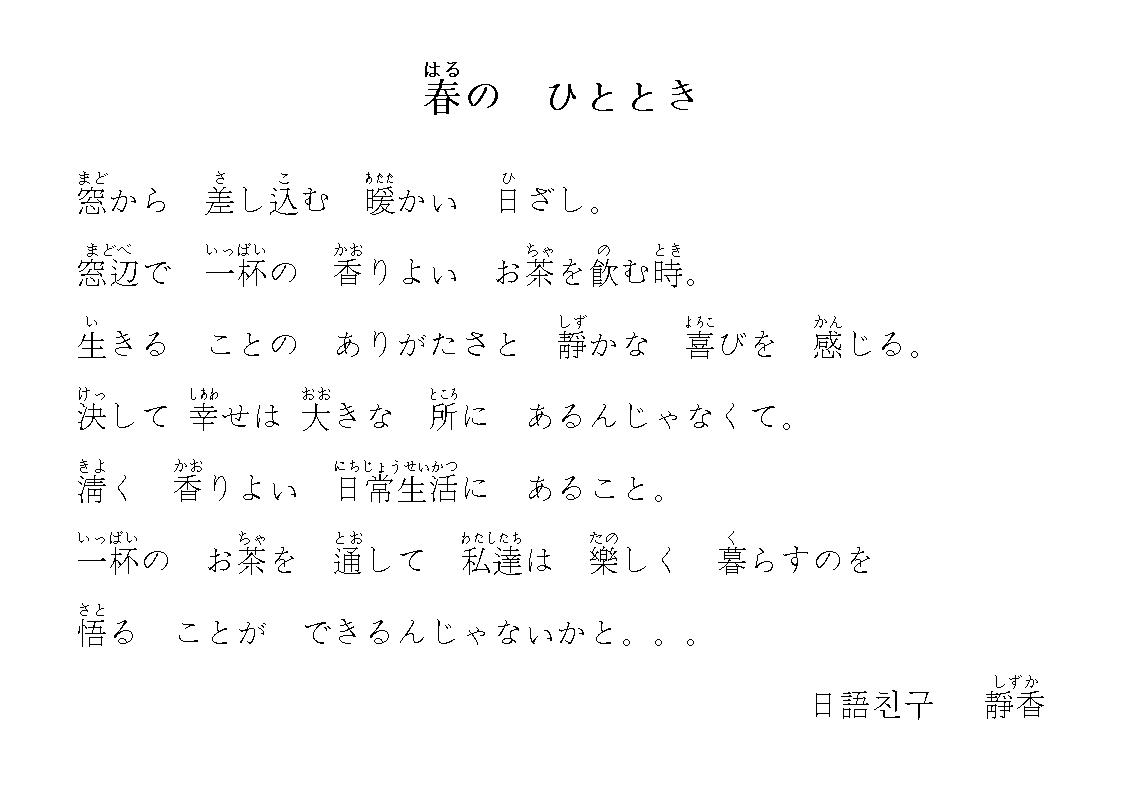 はる
春の　ひととき
まど　さ　こ　あたた　ひ
窓から　差し込む　暖かい　日ざし。
まどべ　いっぱい　かお　ちゃ　の　とき
窓辺で　一杯の　香りよい　お茶を飲む時。
い　しず　よろこ　かん
生きる　ことの　ありがたさと　靜かな　喜びを　感じる。
けっ　しあわ　おお　ところ
決して 幸せは 大きな　所に　あるんじゃなくて。
きよ　かお　にちじょうせいかつ
淸く　香りよい　日常生活に　あること。
いっぱい　ちゃ　とお　わたしたち　たの　く
一杯の　お茶を　通して　私達は　樂しく　暮らすのを
さと
悟る　ことが　できるんじゃないかと。。。
しずか
日語친구　靜香